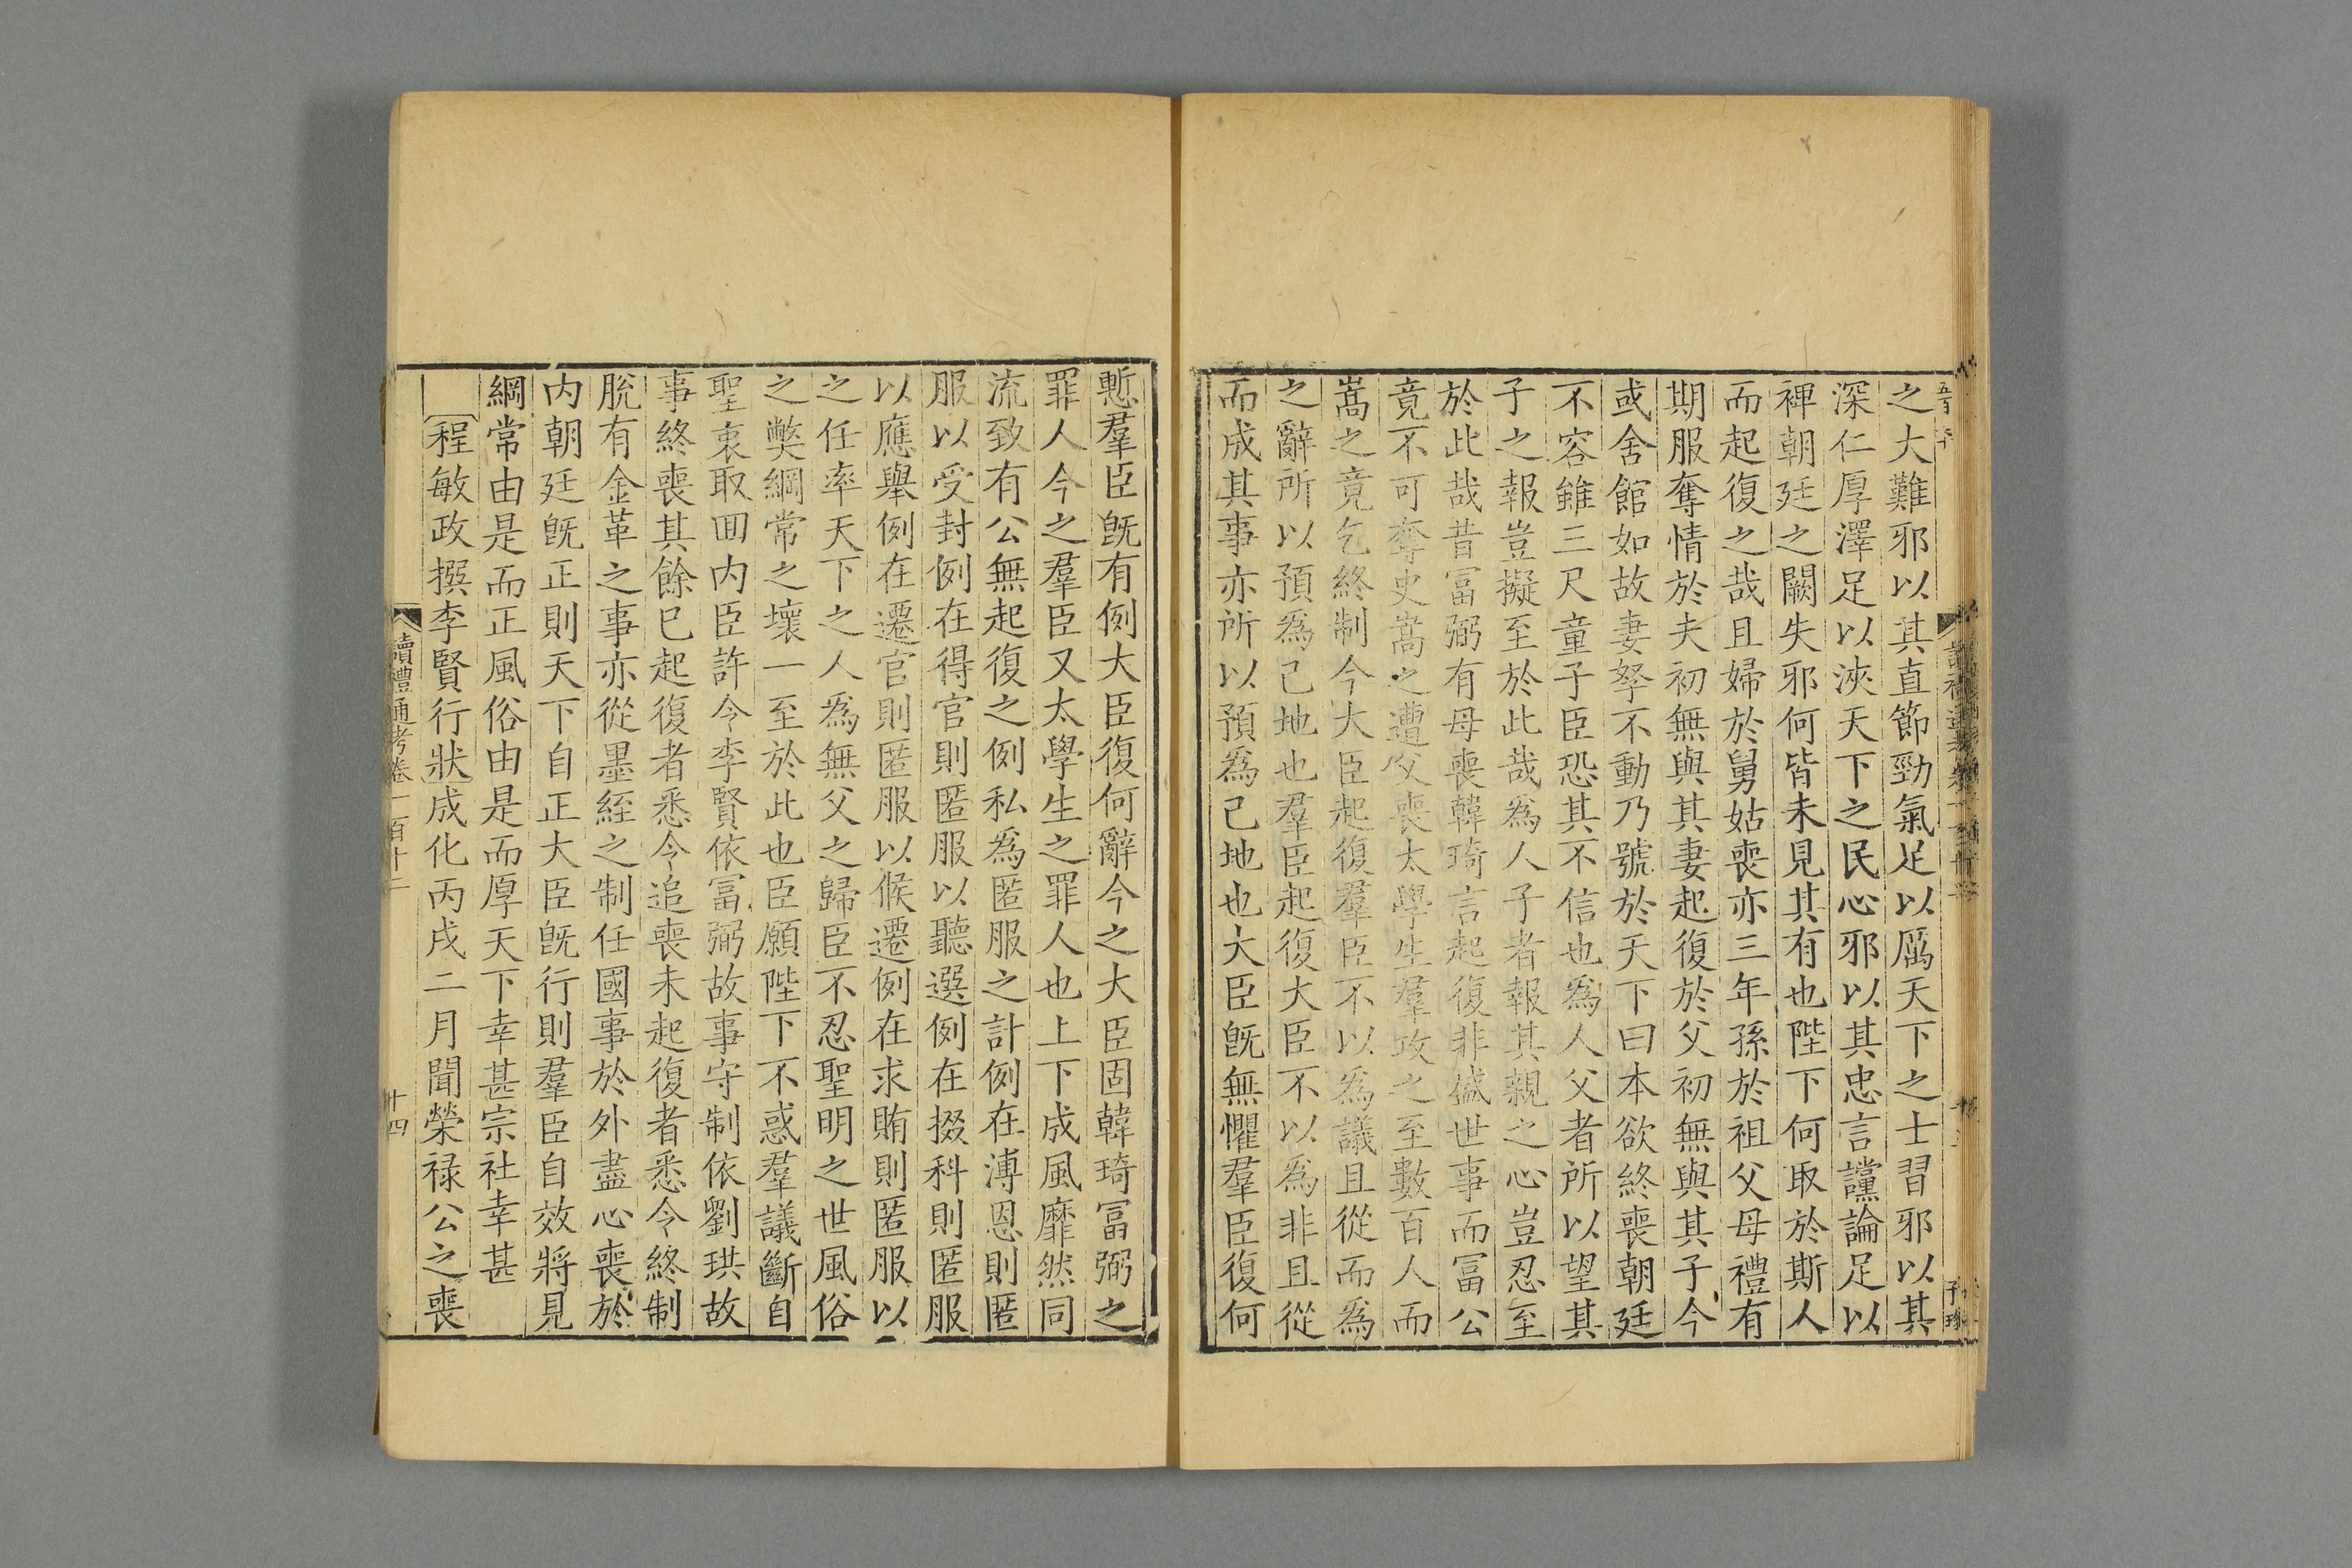 之大難邪以其直節勁氣足以厲天下之士習邪以其
深仁厚澤足以浹天下之民心邪以其忠言讜論足以
裨朝廷之闕失邪何皆未見其有也陛下何取於斯人
而起復之哉且婦於舅姑喪亦三年孫於祖父母禮有
期服奪情於夫初無與其妻起復於父初無與其子今
或舍館如故妻孥不動乃號於天下曰本欲終喪朝廷
不容雖三尺童子臣恐其不信也為人父者所以望其
子之報豈擬至於此哉為人子者報其親之心豈忍至
於此哉昔富弼有母喪韓琦言起復非盛世事而富公
竟不可奪史嵩之遭父喪太學生羣攻之至數百人而
嵩之竟乞終制今大臣起復羣臣不以為議且從而為
之辭所以預為己地也羣臣起復大臣不以為非且從
而成其事亦所以預為己地也大臣既無懼羣臣復何
慙羣臣既有例大臣復何辭今之大臣固韓琦富弼之
罪人今之羣臣又太學生之罪人也上下成風靡然同
流致有公無起復之例私為匿服之計例在溥恩則匿
服以受封例在得官則匿服以聽選例在掇科則匿服
以應舉例在遷官則匿服以候遷例在求賄則匿服以
之任率天下之人為無父之歸臣不忍聖明之世風俗
之獘綱常之壞一至於此也臣願陛下不惑羣議斷自
聖衷取回內臣許令李賢依富弼故事守制依劉珙故
事終喪其餘已起復者悉令追喪未起復者悉令終制
脫有金革之事亦從墨絰之制任國事於外盡心喪於
内朝廷既正則天下自正大臣既行則羣臣自效將見
綱常由是而正風俗由是而厚天下幸甚宗社幸甚
〔程敏政撰李賢行狀〕成化丙戌二月聞榮禄公之喪
讀禮通考卷一百十二
十四